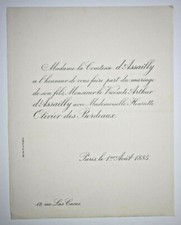 Madame la Comtesse d'Assailly
a l'honneur de vous faire part du mariage
de son fils, Monsieur le Vicomte Arthur
d'Assailly avec Mademoiselle Henriette
Olivier des Bordeaux.
Paris, le 1er Août 1885
19, rue Las Cases